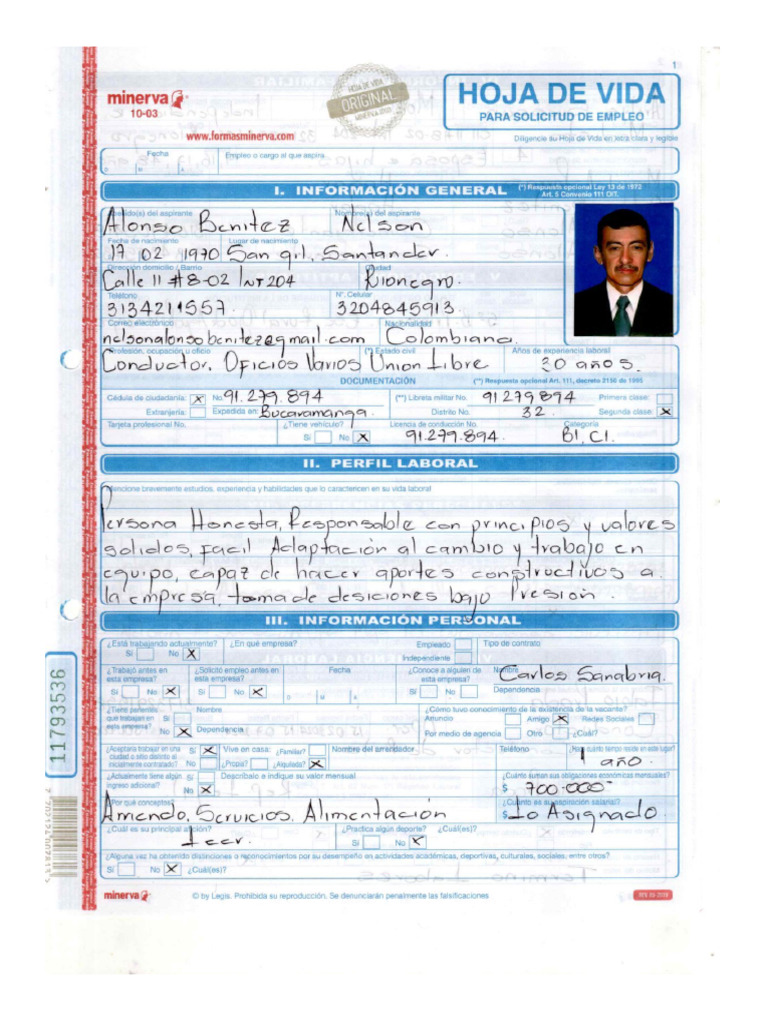 1
minerva
10-03
HOJA DE VIDA
ORIGINAL
MINERVA 1003
HOJA DE VIDA
PARA SOLICITUD DE EMPLEO
www.formasminerva.com
Diligencie su Hoja de Vida en letra clara y legible
Fecha
Empleo o cargo al que aspira
D M A
I. INFORMACIÓN GENERAL
(*) Respuesta opcional Ley 13 de 1972
Art. 5 Convenio 111 OIT.
Apellido(s) del aspirante Nombre(s) del aspirante
Alonso Benitez Nelson
Fecha de nacimiento Lugar de nacimiento
17 02 1970 San gil, Santander.
Dirección domicilio / Barrio Ciudad
Calle 11 #8-02 INT204 Rionegro.
Teléfono N°. Celular
3134211557 3204845913
Correo electrónico Nacionalidad
nelsonalonsobenitez@gmail.com Colombiano.
Profesión, ocupación u oficio (*) Estado civil Años de experiencia laboral
Conductor. Oficios Varios Union Libre 20 años.
DOCUMENTACIÓN (**) Respuesta opcional Art. 111, decreto 2150 de 1995
Cédula de ciudadanía: X No. 91.279.894 (**) Libreta militar No. 91279894 Primera clase:
Extranjería: Expedida en: Bucaramanga. Distrito No. 32. Segunda clase: X
Tarjeta profesional No. ¿Tiene vehículo? Licencia de conducción No. Categoría
Sí No X 91.279.894. B1, C1.
II. PERFIL LABORAL
Mencione brevemente estudios, experiencia y habilidades que lo caractericen en su vida laboral
Persona Honesta, Responsable con principios y valores
solidos, facil Adaptación al cambio y trabajo en
equipo, capaz de hacer aportes constructivos a
la empresa, toma de desiciones bajo Presion.
III. INFORMACIÓN PERSONAL
¿Está trabajando actualmente? ¿En qué empresa? Empleado Tipo de contrato
Sí No X Independiente
¿Trabajó antes en esta empresa? ¿Solicitó empleo antes en esta empresa? Fecha ¿Conoce a alguien de esta empresa? Nombre Carlos Sanabria.
Sí No X Sí No X D M A Sí No Dependencia
¿Tiene parientes que trabajen en esta empresa? Sí Nombre
No X Dependencia
¿Cómo tuvo conocimiento de la existencia de la vacante?
Anuncio Amigo X Redes Sociales
Por medio de agencia Otro ¿Cuál?
¿Aceptaría trabajar en una ciudad o sitio distinto al inicialmente contratado? Sí X No
Vive en casa: ¿Familiar? Nombre del arrendador Teléfono ¿Hace cuánto tiempo reside en este lugar?
¿Propia? ¿Alquilada? X 1 año.
¿Actualmente tiene algún ingreso adicional? Sí No X Descríbalo e indique su valor mensual
¿Cuánto suman sus obligaciones económicas mensuales?
$ 700.000
¿Por qué conceptos?
Arriendo, Servicios, Alimentación
¿Cuánto es su aspiración salarial?
$ lo Asignado
¿Cuál es su principal afición? ¿Practica algún deporte? ¿Cuál(es)?
leer. Sí No X
¿Alguna vez ha obtenido distinciones o reconocimientos por su desempeño en actividades académicas, deportivas, culturales, sociales, entre otros?
Sí No X ¿Cuál(es)?
minerva
© by Legis. Prohibida su reproducción. Se denunciarán penalmente las falsificaciones
11793536